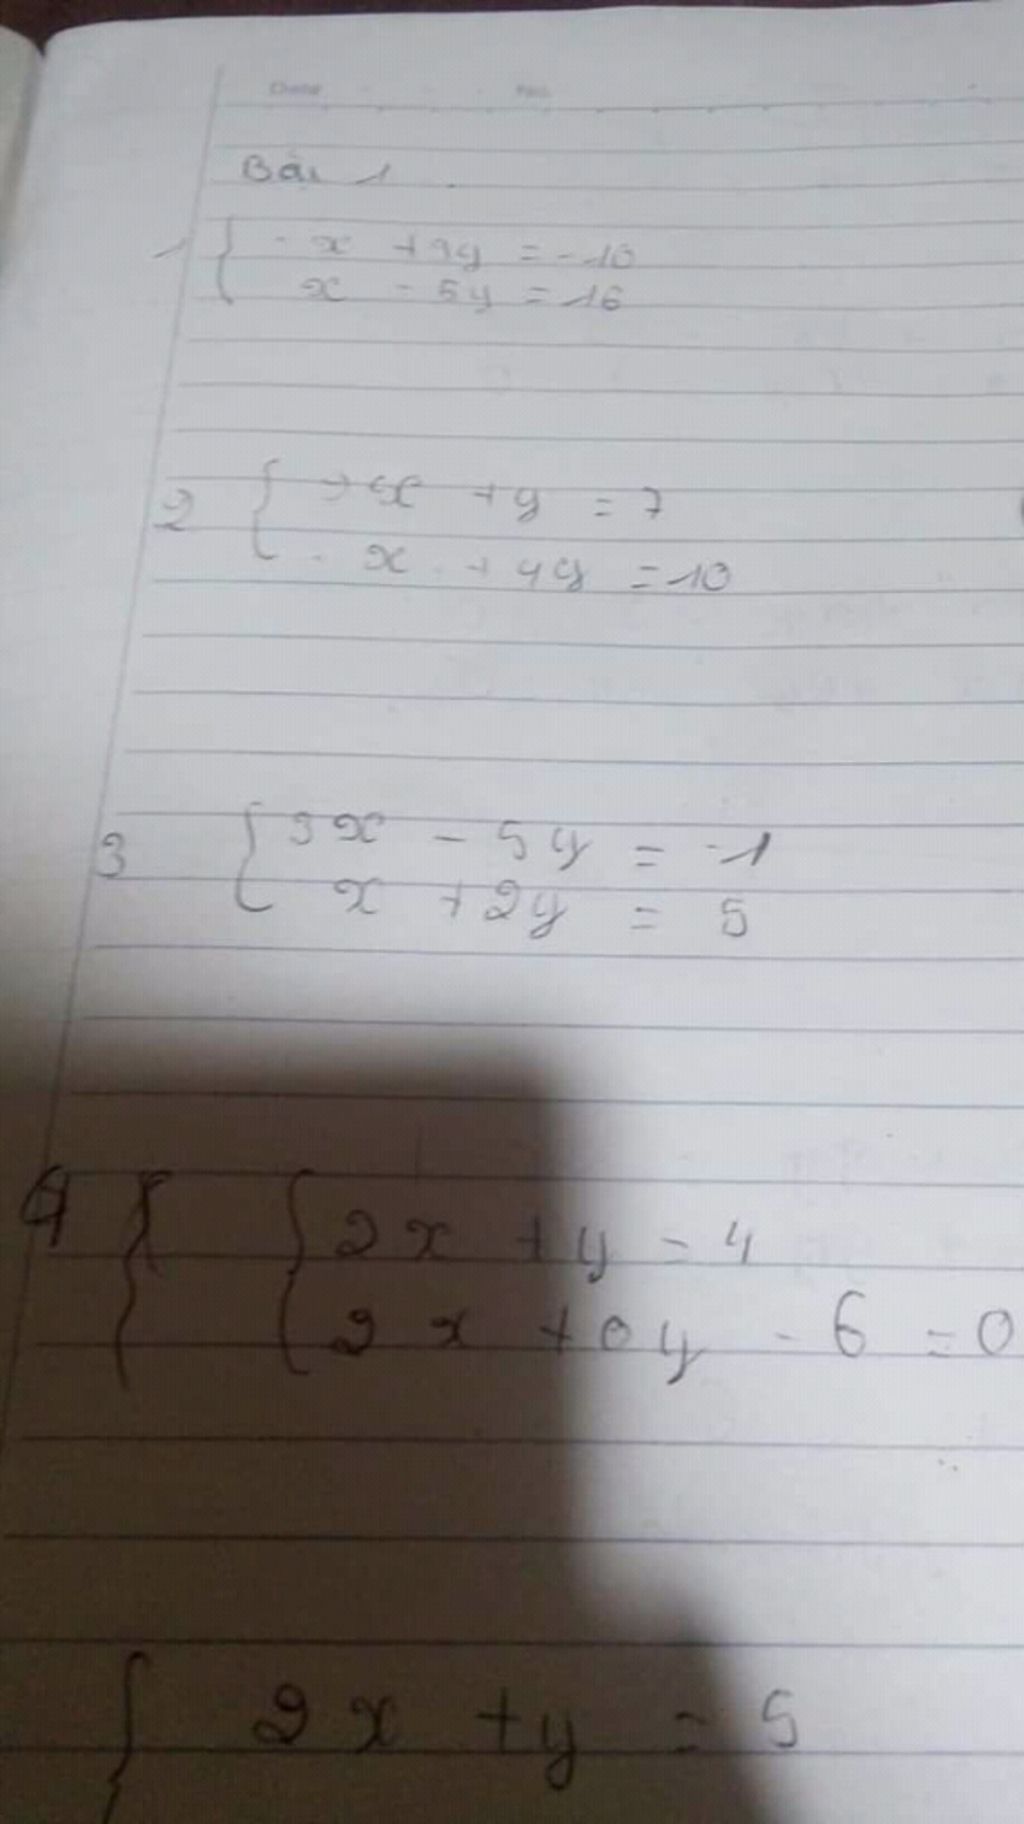 Date No.
Bài 1
1 { - x + 3y = -10
x - 5y = 16
2 { x + y = 7
- x + 4y = 10
3 { 3x - 5y = -1
x + 2y = 5
4 { { 2x + y = 4
2x + 0y - 6 = 0
{ 2x + y = 5